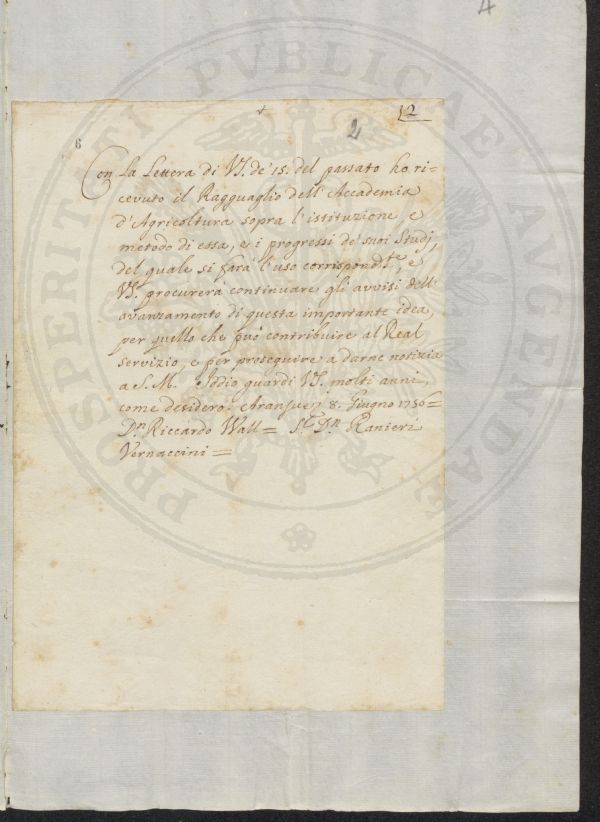 4
12
2
6
Con la Lettera di VS. de' 15. del passato ho ri=
cevuto il Ragguaglio dell' Accademia
d'Agricoltura sopra l'istituzione e
metodo di essa, e i progressi de' suoi Studj,
del quale si farà l'uso corrispondte, e
VS. procurerà continuare gli avvisi dell'
avanzamento di questa importante idea,
per quello che può contribuire al Real
servizio, e per proseguire a darne notizia
a S. M. Iddio guardi VS. molti anni,
come desidero. Aranjuez 8. Giugno 1756=
Dn Riccardo Wall= Sr Dn Ranieri
Vernaccini=
PROSPERITATI PVBLICAE AVGENDAE